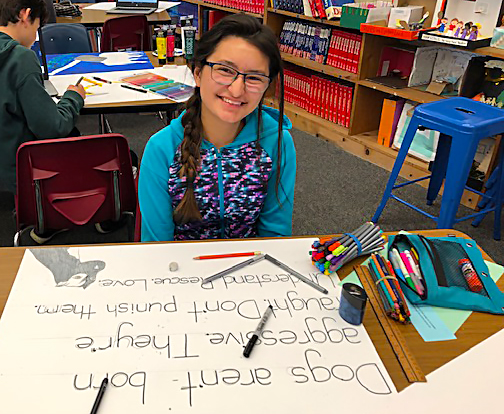 Dogs aren't born
aggressive. They're
taught. Don't punish them.
Understand. Rescue. Love.